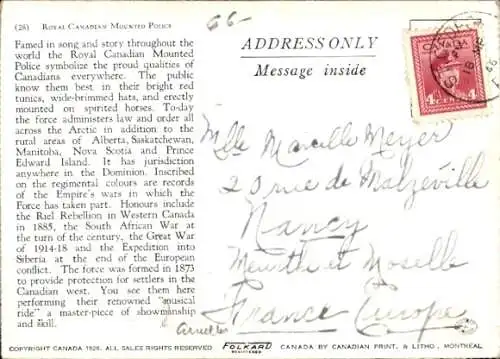 (28) ROYAL CANADIAN MOUNTED POLICE
Famed in song and story throughout the
world the Royal Canadian Mounted
Police symbolize the proud qualities of
Canadians everywhere. The public
know them best in their bright red
tunics, wide-brimmed hats, and erectly
mounted on spirited horses. To-day
the force administers law and order all
across the Arctic in addition to the
rural areas of Alberta, Saskatchewan,
Manitoba, Nova Scotia and Prince
Edward Island. It has jurisdiction
anywhere in the Dominion. Inscribed on
the regimental colours are records
of the Empire's wars in which the
Force has taken part. Honours include
the Riel Rebellion in Western Canada
in 1885, the South African War at
the turn of the century, the Great War
of 1914-18 and the Expedition into
Siberia at the end of the European
conflict. The force was formed in 1873
to provide protection for settlers in the
Canadian west. You see them here
performing their renowned "musical
ride" a master-piece of showmanship
and skill.
66-
ADDRESS ONLY
Message inside
4 CENTS 4
Mlle Marcelle Meyer
20 rue de Malzéville
Nancy
Meurthe et Moselle
France Europe
COPYRIGHT CANADA 1926. ALL SALES RIGHTS RESERVED
FOLKARD
REGISTERED
CANADA BY CANADIAN PRINT. & LITHO., MONTREAL